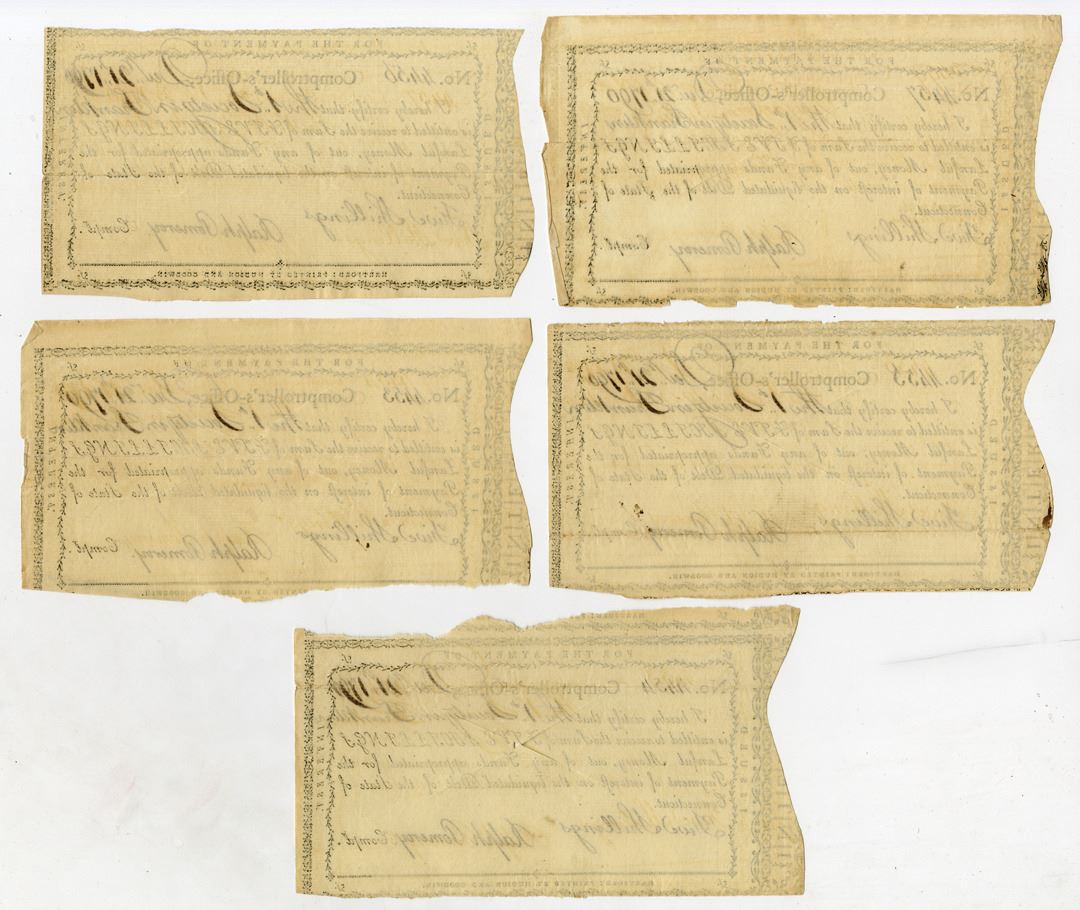 FOR THE PAYMENT OF
No. 4456 Comptroller's-Office, Decr. 21 1790
I hereby certify that the 1st Society in Franklin
is entitled to receive the Sum of FIVE SHILLINGS
Lawful Money, out of any Funds appropriated for the
Payment of interest on the liquidated Debt of the State of
Connecticut.
Five Shillings Ralph Pomeroy Compt.
HARTFORD: PRINTED BY HUDSON AND GOODWIN.
FOR THE PAYMENT OF
No. 4457 Comptroller's-Office, Decr. 21 1790
I hereby certify that the 1st Society in Franklin
is entitled to receive the Sum of FIVE SHILLINGS
Lawful Money, out of any Funds appropriated for the
Payment of interest on the liquidated Debt of the State of
Connecticut.
Five Shillings Ralph Pomeroy Compt.
HARTFORD: PRINTED BY HUDSON AND GOODWIN.
FOR THE PAYMENT OF
No. Comptroller's-Office, Decr. 21 1790
I hereby certify that the 1st Society in Franklin
is entitled to receive the Sum of FIVE SHILLINGS
Lawful Money, out of any Funds appropriated for the
Payment of interest on the liquidated Debt of the State of
Connecticut.
Five Shillings Ralph Pomeroy Compt.
FOR THE PAYMENT OF
No. 4458 Comptroller's-Office, Decr. 21 1790
I hereby certify that the 1st Society in Franklin
is entitled to receive the Sum of FIVE SHILLINGS
Lawful Money, out of any Funds appropriated for the
Payment of interest on the liquidated Debt of the State of
Connecticut.
Five Shillings Ralph Pomeroy Compt.
HARTFORD: PRINTED BY HUDSON AND GOODWIN.
FOR THE PAYMENT OF
No. 4454 Comptroller's-Office, Decr. 21 1790
I hereby certify that the 1st Society in Franklin
is entitled to receive the Sum of FIVE SHILLINGS
Lawful Money, out of any Funds appropriated for the
Payment of interest on the liquidated Debt of the State of
Connecticut.
Five Shillings Ralph Pomeroy Compt.
HARTFORD: PRINTED BY HUDSON AND GOODWIN.